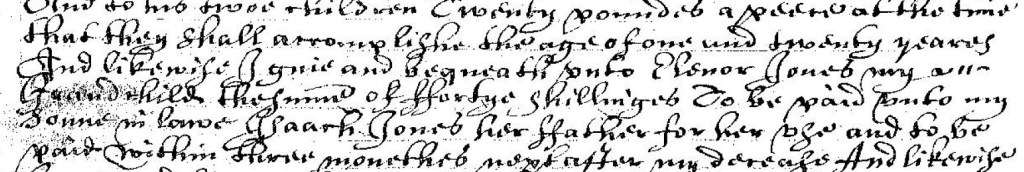 And to his twoe children Twenty poundes a peece at the time
that they shall accomplishe the age of one and twenty yeares
And likewise I giue and bequeath vnto Elenor Jones my
Grandchild the summe of ffortye shillinges To be paid vnto my
Sonne in lawe Isaack Jones her ffather for her vse and to be
paid within three monethes next after my decease And likewise